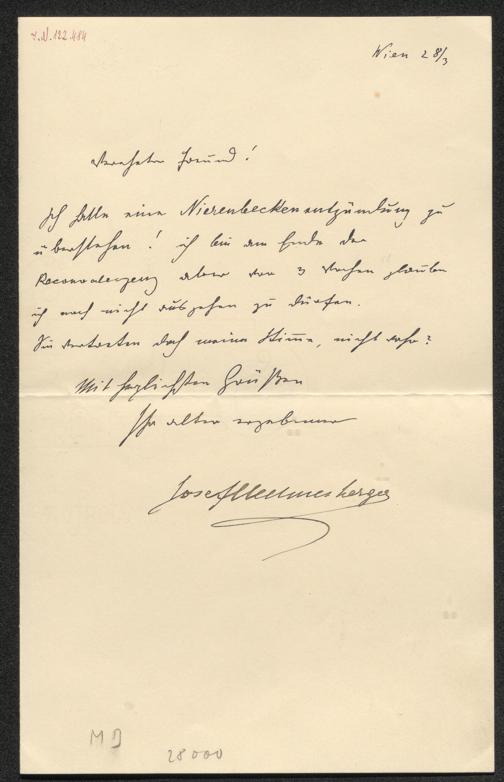 I.N. 122.484
Wien 28/3
Verehrter Freund!
Ich hatte eine Nierenbeckenentzündung zu
überstehen! ich bin am Ende der
Reconvalenzenz aber vor 3 Wochen glauben
ich noch nicht ausgehen zu dürfen.
Sie vertreten doch meine Stimme, nicht wahr?
Mit herzlichsten Grüßen
Ihr alter ergebener
Josef Hellmesberger
M D
28000